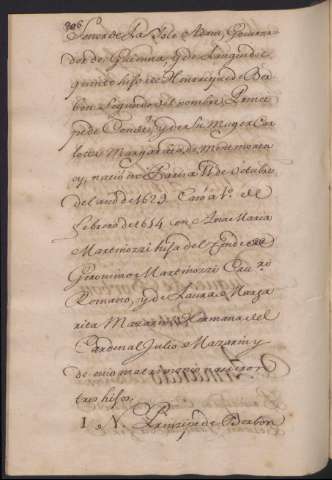 306
Señor de La Isle Adam, Governa
dor de Guienna, y de Languedoc
quinto hijo de Henrique de Bor
bon segundo del nombre, Princi
pe de Condè, y de su Muger Car
lotta Margarita de Montmoren
cy, naciò en Paris a 11 de Octubre
del año de 1629 Casò a 1º del
Febrero de 1654 con Ana Maria
Martinozzi hija del Conde
Geronimo Martinozzi Cau.ro
Romano, y de Laura Marga
rita Mazarini Hermana del
Cardenal Julio Mazarini y
de este matrimonio nacieron
tres hijos.
1 = N. Principe de Borbon